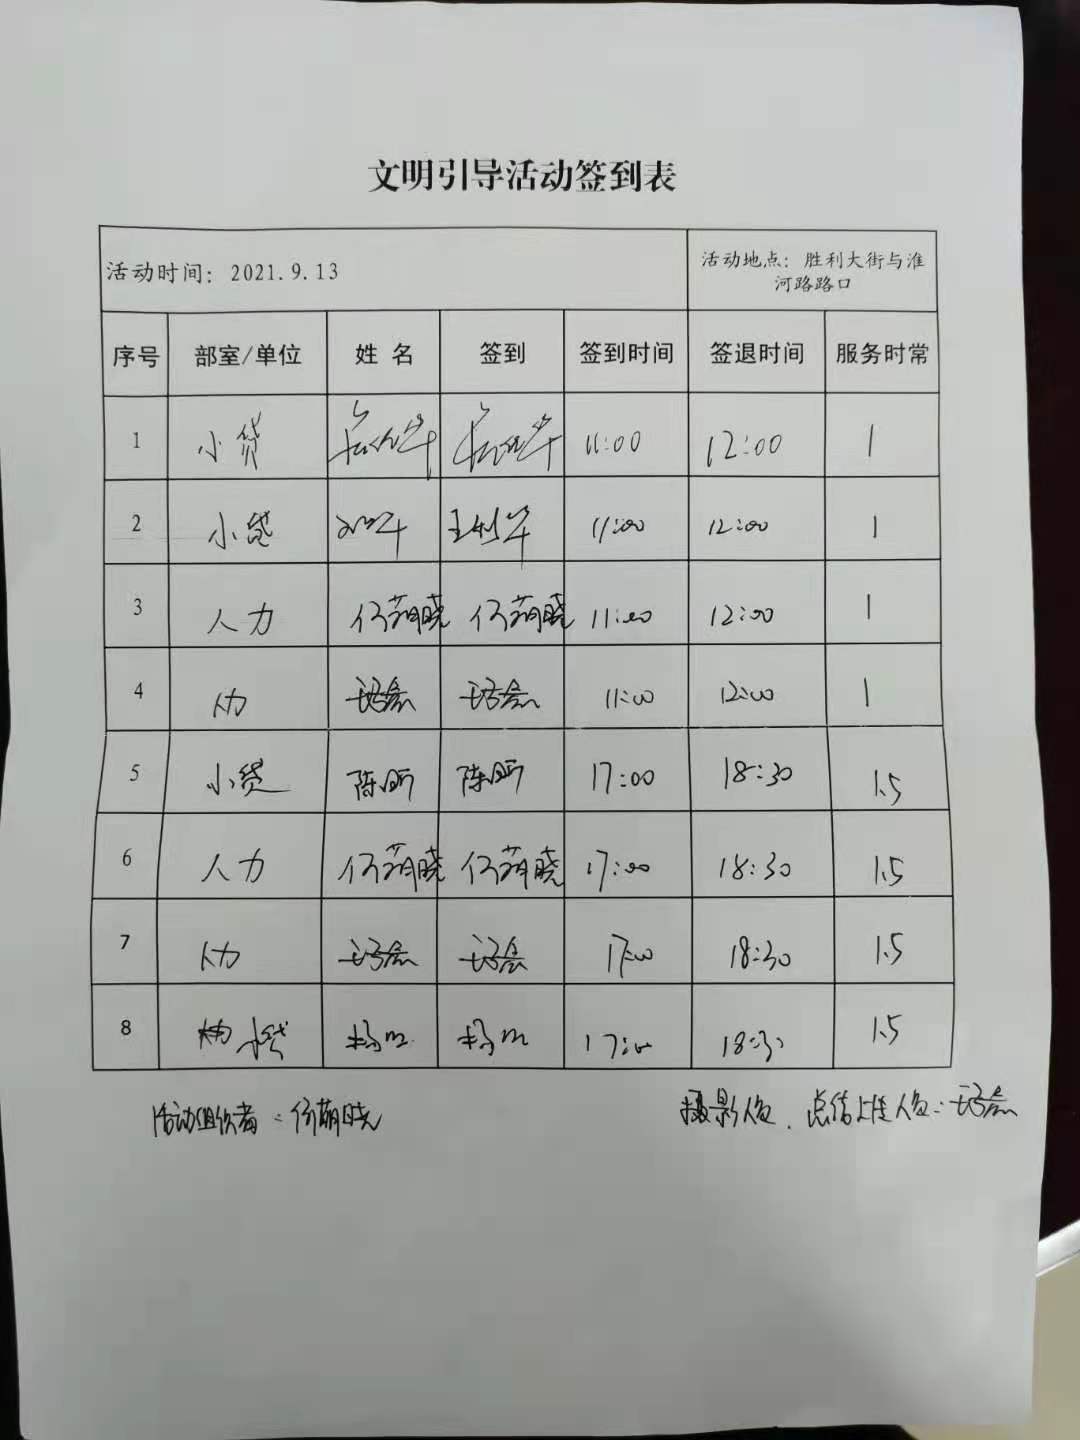 文明引导活动签到表
活动时间：2021.9.13
活动地点：胜利大街与淮
河路路口
序号 部室/单位 姓 名 签到 签到时间 签退时间 服务时常
1 小贷 11:00 12:00 1
2 小贷 11:00 12:00 1
3 人力 何萌晓 何萌晓 11:00 12:00 1
4 人力 11:00 12:00 1
5 小贷 陈昕 陈昕 17:00 18:30 1.5
6 人力 何萌晓 何萌晓 17:00 18:30 1.5
7 人力 17:00 18:30 1.5
8 小贷 17:00 18:30 1.5
活动组织者：何萌晓
摄影人员、总结上传人员：